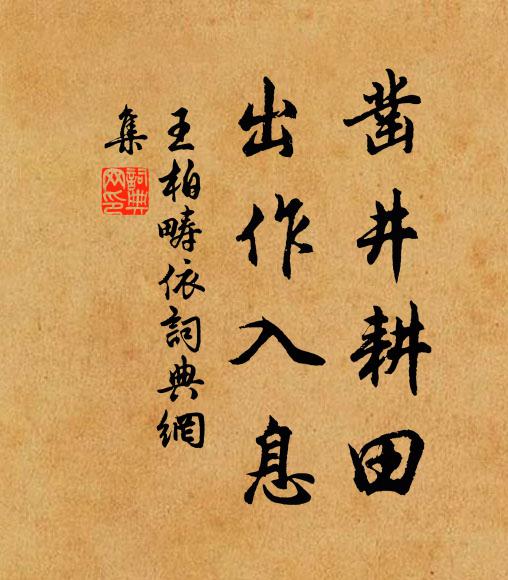 凿井耕田
出作入息
王柏畴依詞典網
集
詞典
网印